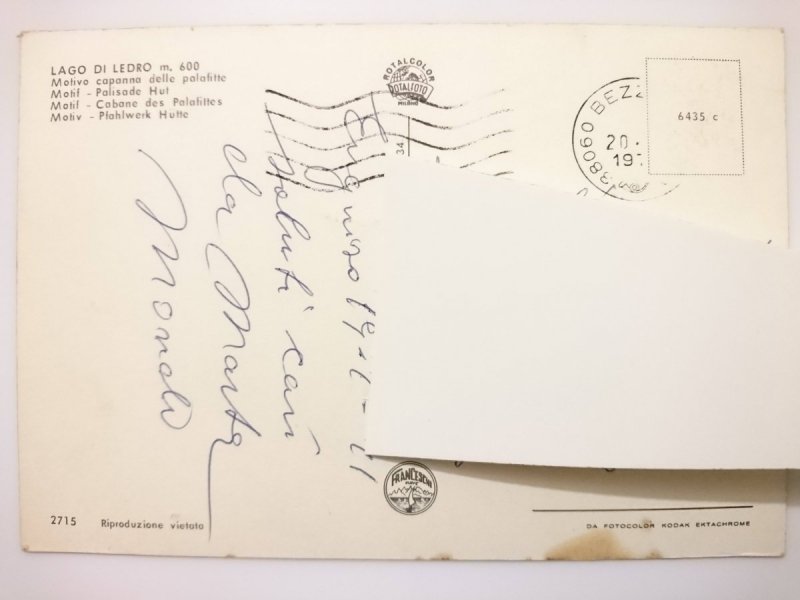 LAGO DI LEDRO m. 600
Motivo capanna delle palafitte
Motif - Palisade Hut
Motif - Cabane des Palafittes
Motiv - Pfahlwerk Hutte
ROTALCOLOR
ROTALFOTO
MILANO
34
38060 BEZZ
20.
197
6435 c
Saluti cari
da Marta
FRANCESCHI
2715 Riproduzione vietata
DA FOTOCOLOR KODAK EKTACHROME